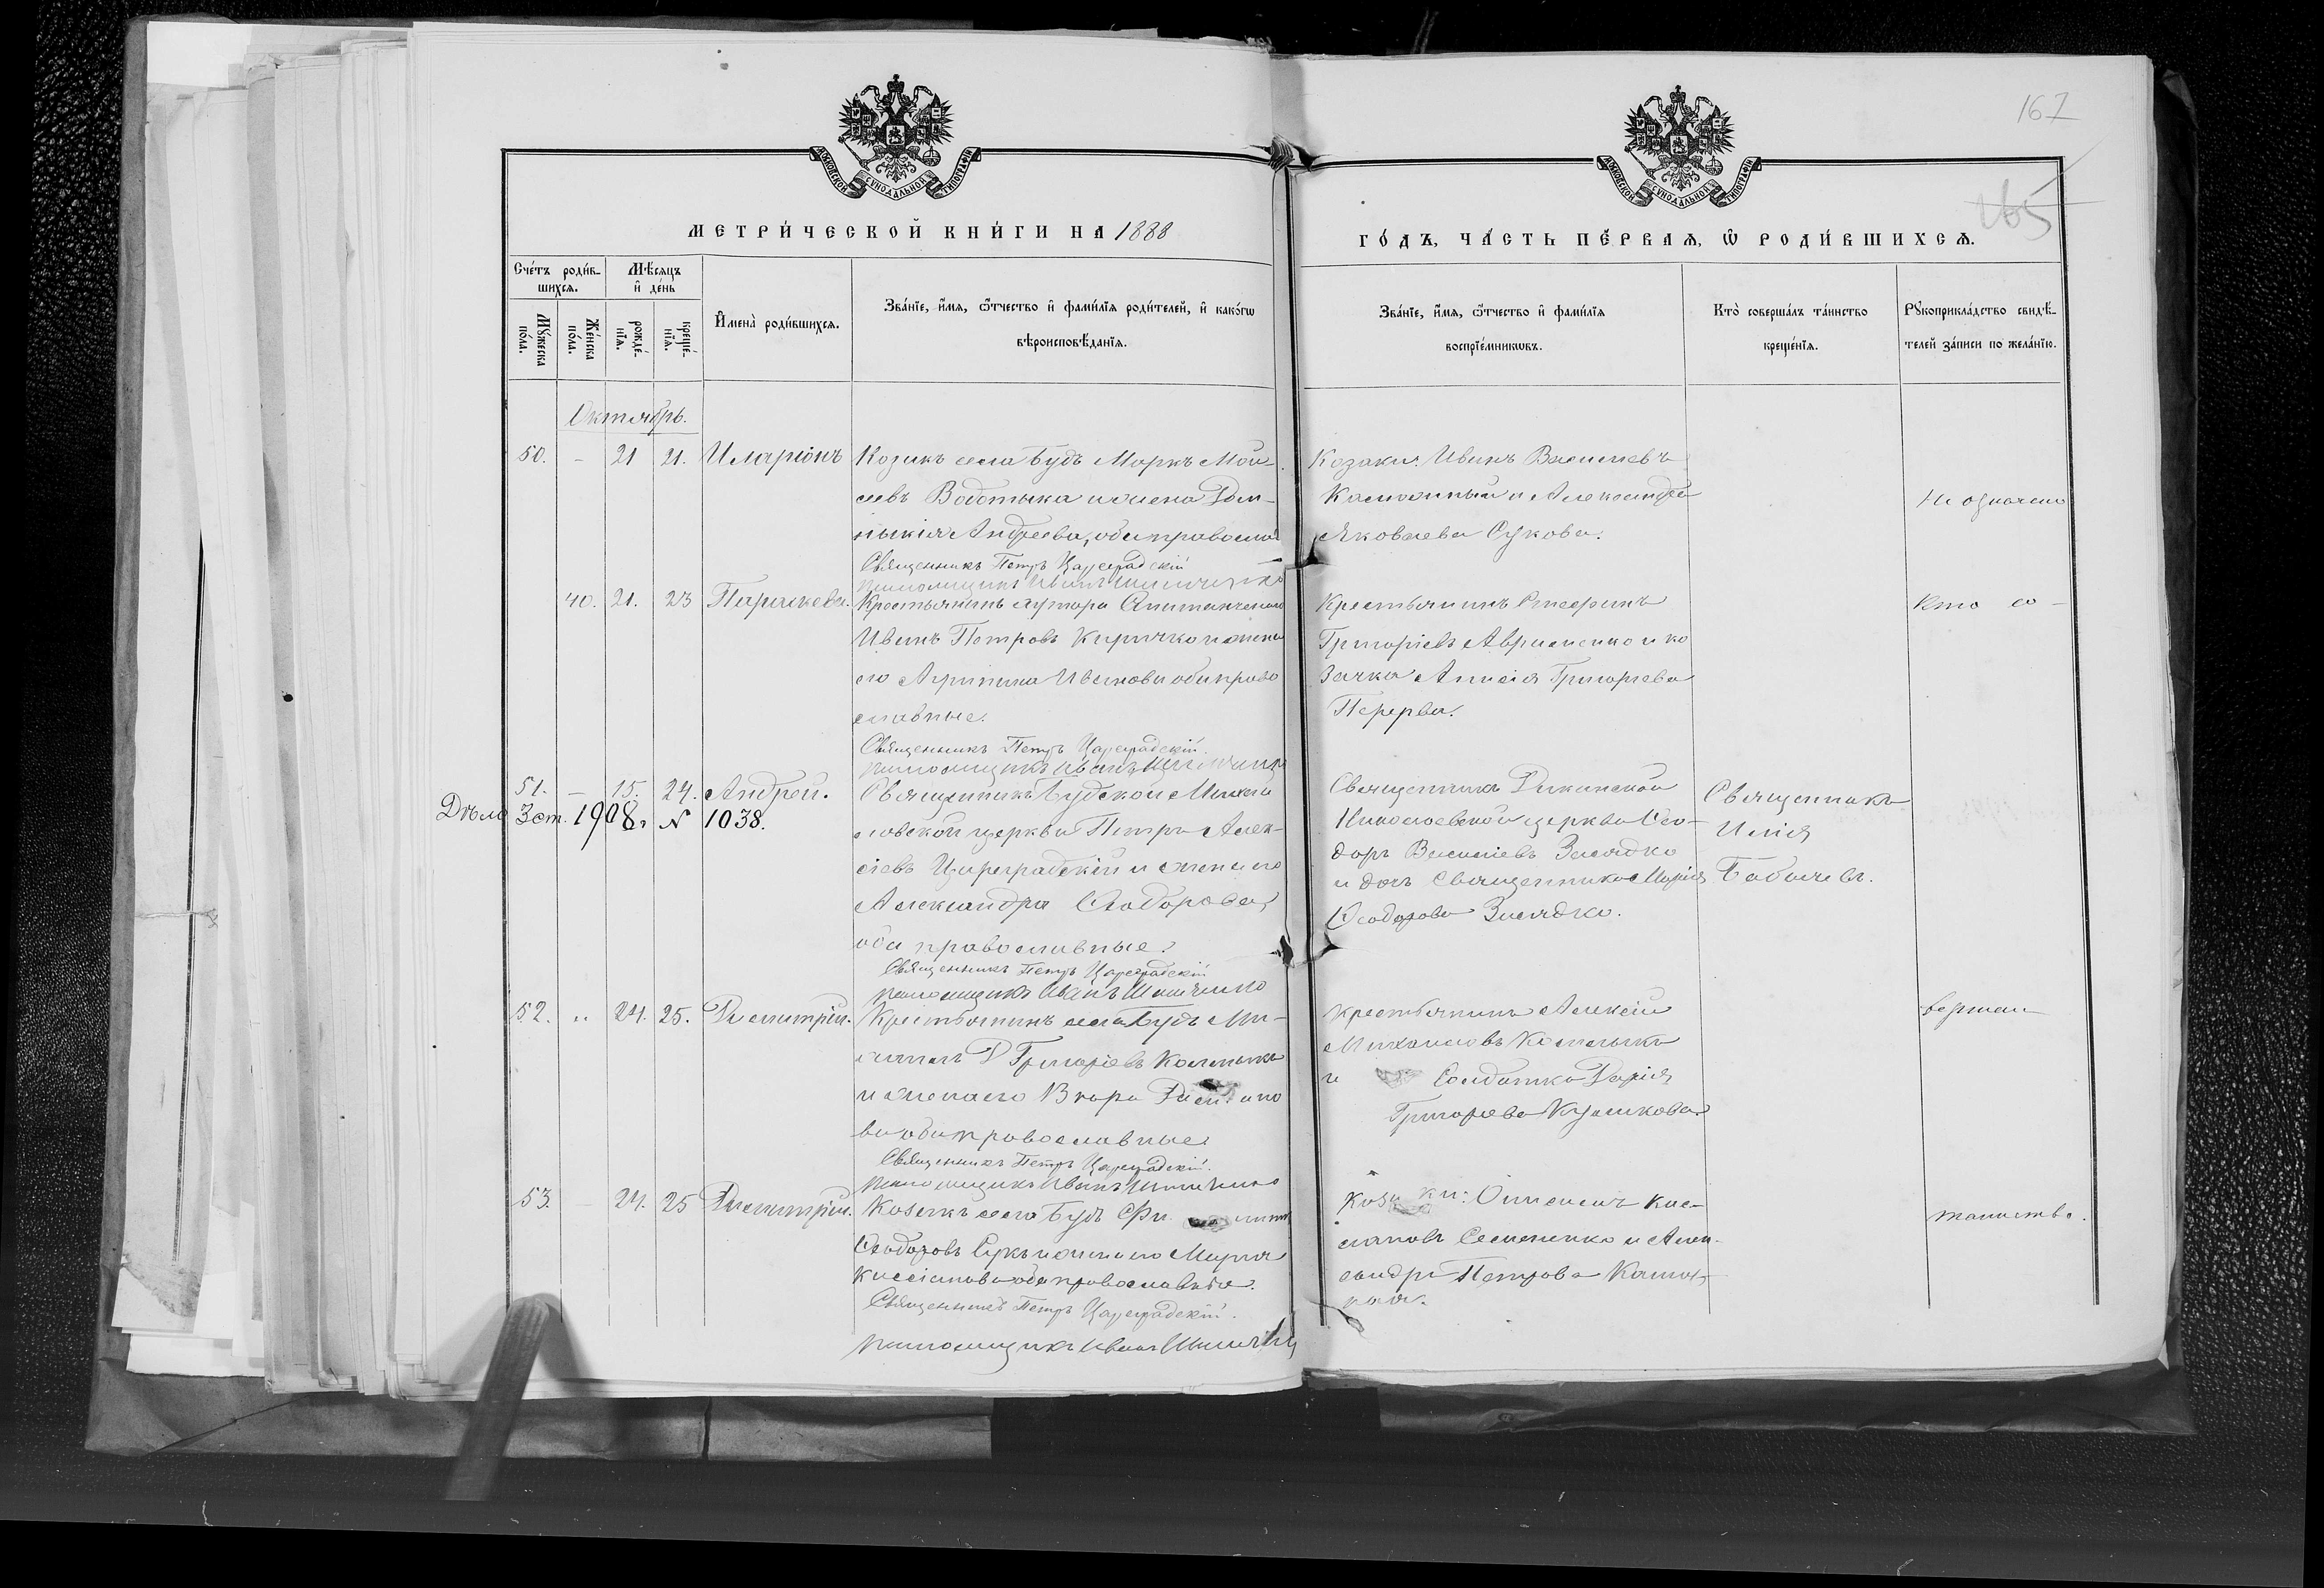 167
165
МОСКОВСКОЙ СѴНОДАЛЬНОЙ ТИПОГРАФІИ
МОСКОВСКОЙ СѴНОДАЛЬНОЙ ТИПОГРАФІИ
МЕТРИ́ЧЕСКОЙ КНИ́ГИ НА 1888
ГО́ДЪ, ЧА́СТЬ ПЕ́РВАѦ, Ѽ РОДИ́ВШИХСѦ.
Сче́тъ роди́в-
шихсѧ.
Мѣ́сѧцъ
и҆ де́нь
Мꙋ́жеска
по́ла.
Же́нска
по́ла.
рожде́-
нїѧ.
креще́-
нїѧ.
И҆мена̀ роди́вшихсѧ.
Зва́нїе, и҆́мѧ, ѻ҆́тчество и҆ фами́лїѧ роди́телей, и҆ како́гѡ
вѣроисповѣ́данїѧ.
Зва́нїе, и҆́мѧ, ѻ҆́тчество и҆ фами́лїѧ
воспрїе́мникѡвъ.
Кто̀ соверша́лъ та́инство
креще́нїѧ.
Рꙋкоприкла́дство свидѣ́-
телей за́писи по жела́нїю.
Октябрь.
50. - 21 21. Иларіонъ Козакъ села Будъ Маркъ Мои-
сеевъ Водотыка и жена Дом-
никія Андреева, оба православ
Священникъ Петръ Цареградскій
псаломщикъ Иванъ
Козаки: Иванъ Васильевъ
и Александра
Яковлева Сукова.
Не означено
40. 21. 23 Параскева. Крестьянинъ хутора
Иванъ Петровъ Киричко и жена
его Агрипина Иванова оба право
славные.
Священникъ Петръ Цареградскій.
псаломщикъ Иванъ
Крестьянинъ Стефанъ
Григоріевъ Авраменко и ко
зачка Анисія Григорьева
Перерва.
кто со-
51. - 15. 24. Андрей. Священникъ Будской Михаи
ловской церкви Петръ Алек-
сіевъ Цареградскій и жена его
Александра Ѳеодорова,
оба православные.
Священникъ Петръ Цареградскій
псаломщикъ Иванъ
Дѣло 3 ст. 1908 г. № 1038.
Священникъ Диканской
Николаевской церкви Ѳео-
доръ Василіевъ Засядко
и дочь священника Марія
Ѳеодорова Засядко.
Священникъ
Илія
Бабичевъ.
52. „ 24. 25. Димитрій. Крестьянинъ села Будъ Ми-
хаилъ Григоріевъ Калмыкъ
и жена его
ва оба православные
Священникъ Петръ Цареградскій.
псаломщикъ Иванъ
крестьянинъ Алексій
Михаиловъ Калмыкъ
и Солдатка Дарія
Григорьева Куликова.
вершал
53. - 24. 25 Димитрій. Козакъ села Будъ
Ѳеодоровъ Сукъ и жена его Марія
Кассіанова оба православные.
Священникъ Петръ Цареградскій.
псаломщикъ Иванъ
Козаки: Симеонъ Кас-
сіановъ Семененко и Алек-
сандра Петрова
таинство.